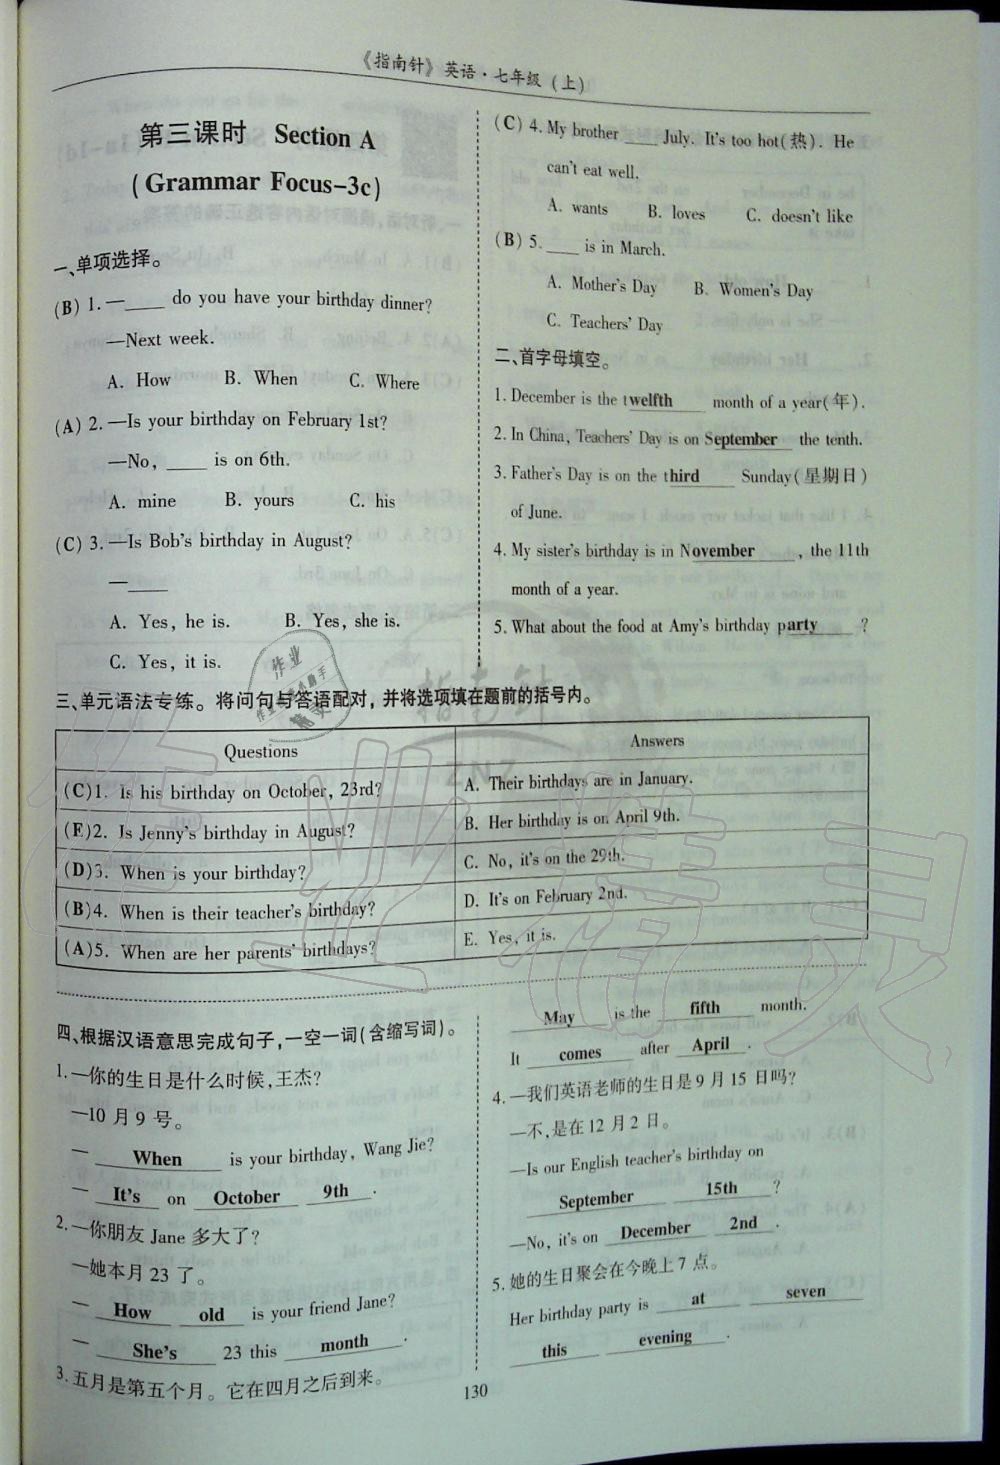 《指南针》英语·七年级（上）
第三课时 Section A
(Grammar Focus-3c)
一、单项选择。
(B) 1. —____ do you have your birthday dinner?
—Next week.
A. How B. When C. Where
(A) 2. —Is your birthday on February 1st?
—No, ____ is on 6th.
A. mine B. yours C. his
(C) 3. —Is Bob's birthday in August?
—____
A. Yes, he is. B. Yes, she is.
C. Yes, it is.
(C) 4. My brother ____ July. It's too hot(热). He
can't eat well.
A. wants B. loves C. doesn't like
(B) 5. ____ is in March.
A. Mother's Day B. Women's Day
C. Teachers' Day
二、首字母填空。
1. December is the twelfth month of a year(年).
2. In China, Teachers' Day is on September the tenth.
3. Father's Day is on the third Sunday(星期日)
of June.
4. My sister's birthday is in November, the 11th
month of a year.
5. What about the food at Amy's birthday party ?
三、单元语法专练。将问句与答语配对，并将选项填在题前的括号内。
Questions Answers
(C)1. Is his birthday on October, 23rd? A. Their birthdays are in January.
(E)2. Is Jenny's birthday in August? B. Her birthday is on April 9th.
(D)3. When is your birthday? C. No, it's on the 29th.
(B)4. When is their teacher's birthday? D. It's on February 2nd.
(A)5. When are her parents' birthdays? E. Yes, it is.
四、根据汉语意思完成句子，一空一词(含缩写词)。
1. —你的生日是什么时候,王杰?
—10月9号。
— When is your birthday, Wang Jie?
— It's on October 9th.
2. —你朋友 Jane 多大了?
—她本月23了。
— How old is your friend Jane?
— She's 23 this month.
3. 五月是第五个月。它在四月之后到来。
May is the fifth month.
It comes after April.
4. —我们英语老师的生日是9月15日吗?
—不,是在12月2日。
—Is our English teacher's birthday on
September 15th?
—No, it's on December 2nd.
5. 她的生日聚会在今晚上7点。
Her birthday party is at seven
this evening.
130
指南针
ZNZ